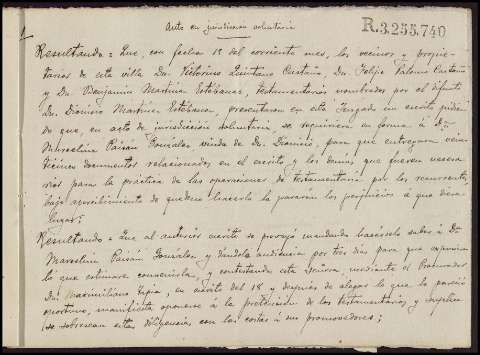 Auto en jurisdicion voluntaria
R.3.255.740
1
Resultando = Que, con fecha 18 del corriente mes, los vecinos y propie-
tarios de esta villa Dn. Victorino Quintano Castaño, Dn. Felipe Palomo Castaño
y Dn. Benjamin Martinez Estébanez, testamentarios nombrados por el difunto
Dn. Dionisio Martinez Estébanez, presentaron en este Juzgado un escrito pidien-
do que, en acto de jurisdicion voluntaria, se requiriera en forma á Dña
Marcelina Paisan Gonzalez viuda de Dn. Dionisio, para que entregara vein-
ticinco documentos relacionados en el escrito y los demás que fueren necesa-
rios para la práctica de las operaciones de testamentaría por los recurrentes,
bajo apercibimiento de que de no hacerlo la pararán los perjuicios á que diera
lugar;
Resultando = Que al anterior escrito se proveyó mandando hacérselo saber á Dña
Marcelina Paisan Gonzalez y dándola audiencia por tres dias para que expusiera
lo que estimara conveniente, y contestando esta Señora, mediante el Procurador
Dn. Maximiliano Tapia, en escrito del 18 y después de alegar lo que la pareció
oportuno, manifiesta oponerse á la pretension de los testamentarios y suplica
se sobresean estas diligencias con las costas á sus promovedores;